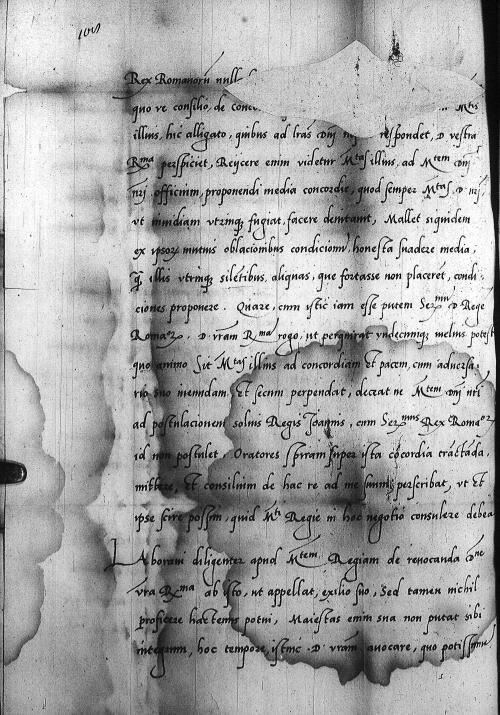 Rex Romanorū null
quo ve consilio, de conc Mtis
illius, hic alligato, quibus ad lras Dnj respondet, D vestra
Rma perspiciet, Reijcere enim videtur Mtas illius, ad Mtem Dnj
nrj officium, proponendi media concordie, quod semper Mtas, D. nrj
vt inuidiam vtrinq3 fugiat, facere detrectauit, Mallet siquidem
ex ipsor mutuis oblacionibus condicionū, honesta suadere media,
q̄ illis vtrinq3 silētibus, aliquas, que fortasse non placerēt, condi-
ciones proponere. Quare, cum istic iam esse putem Sermū D Rege
Romaor, D. vram Rma rogo, ut percunctet vndecumq3 melius potest
quo animo sit Mtas illius ad concordiam et pacem, cum aduersa-
rio suo ineundam, Et secum perpendat, deceat ne Mtem Dnj nri
ad postulacionem solius Regis Joannis, cum Sermus Rex Romaor
id non postulet, Oratores suos super ista cōcordia tractāda,
mittere, Et consilium de hac re ad me suum perscribat, vt Et
ipse scire possim, quid Mti Regie in hoc negotio consulere debeā
Laboraui diligenter apud Mtem Regiam de reuocanda Dne
vra Rma ab isto, ut appellat, exilio suo, Sed tamen nichil
proficere hactenus potui, Maiestas enim sua non putat sibi
integrum, hoc tempore, istinc D. vram auocare, quo potissimum